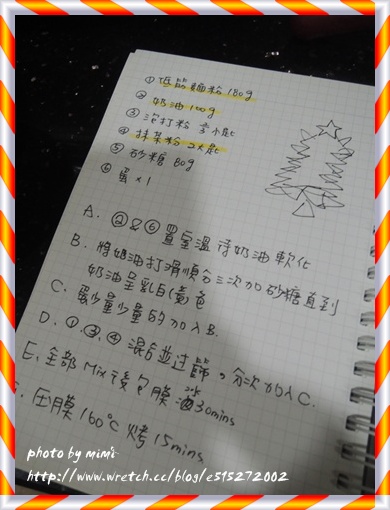 ① 低筋麵粉 180g
② 奶油 100g
③ 泡打粉 小匙
④ 抹茶粉 2大匙
⑤ 砂糖 80g
⑥ 蛋 x 1
A. ②&⑥置室溫待奶油軟化
B. 將奶油打滑順分三次加砂糖直到
奶油呈乳白黃色
C. 蛋少量少量的加入B.
D. ①.③.④ 混合並過篩。分次加入C.
E. 全部Mix後包膜 冰30mins
壓膜160℃ 烤15mins
photo by mimi
http://www.wretch.cc/blog/e515272002